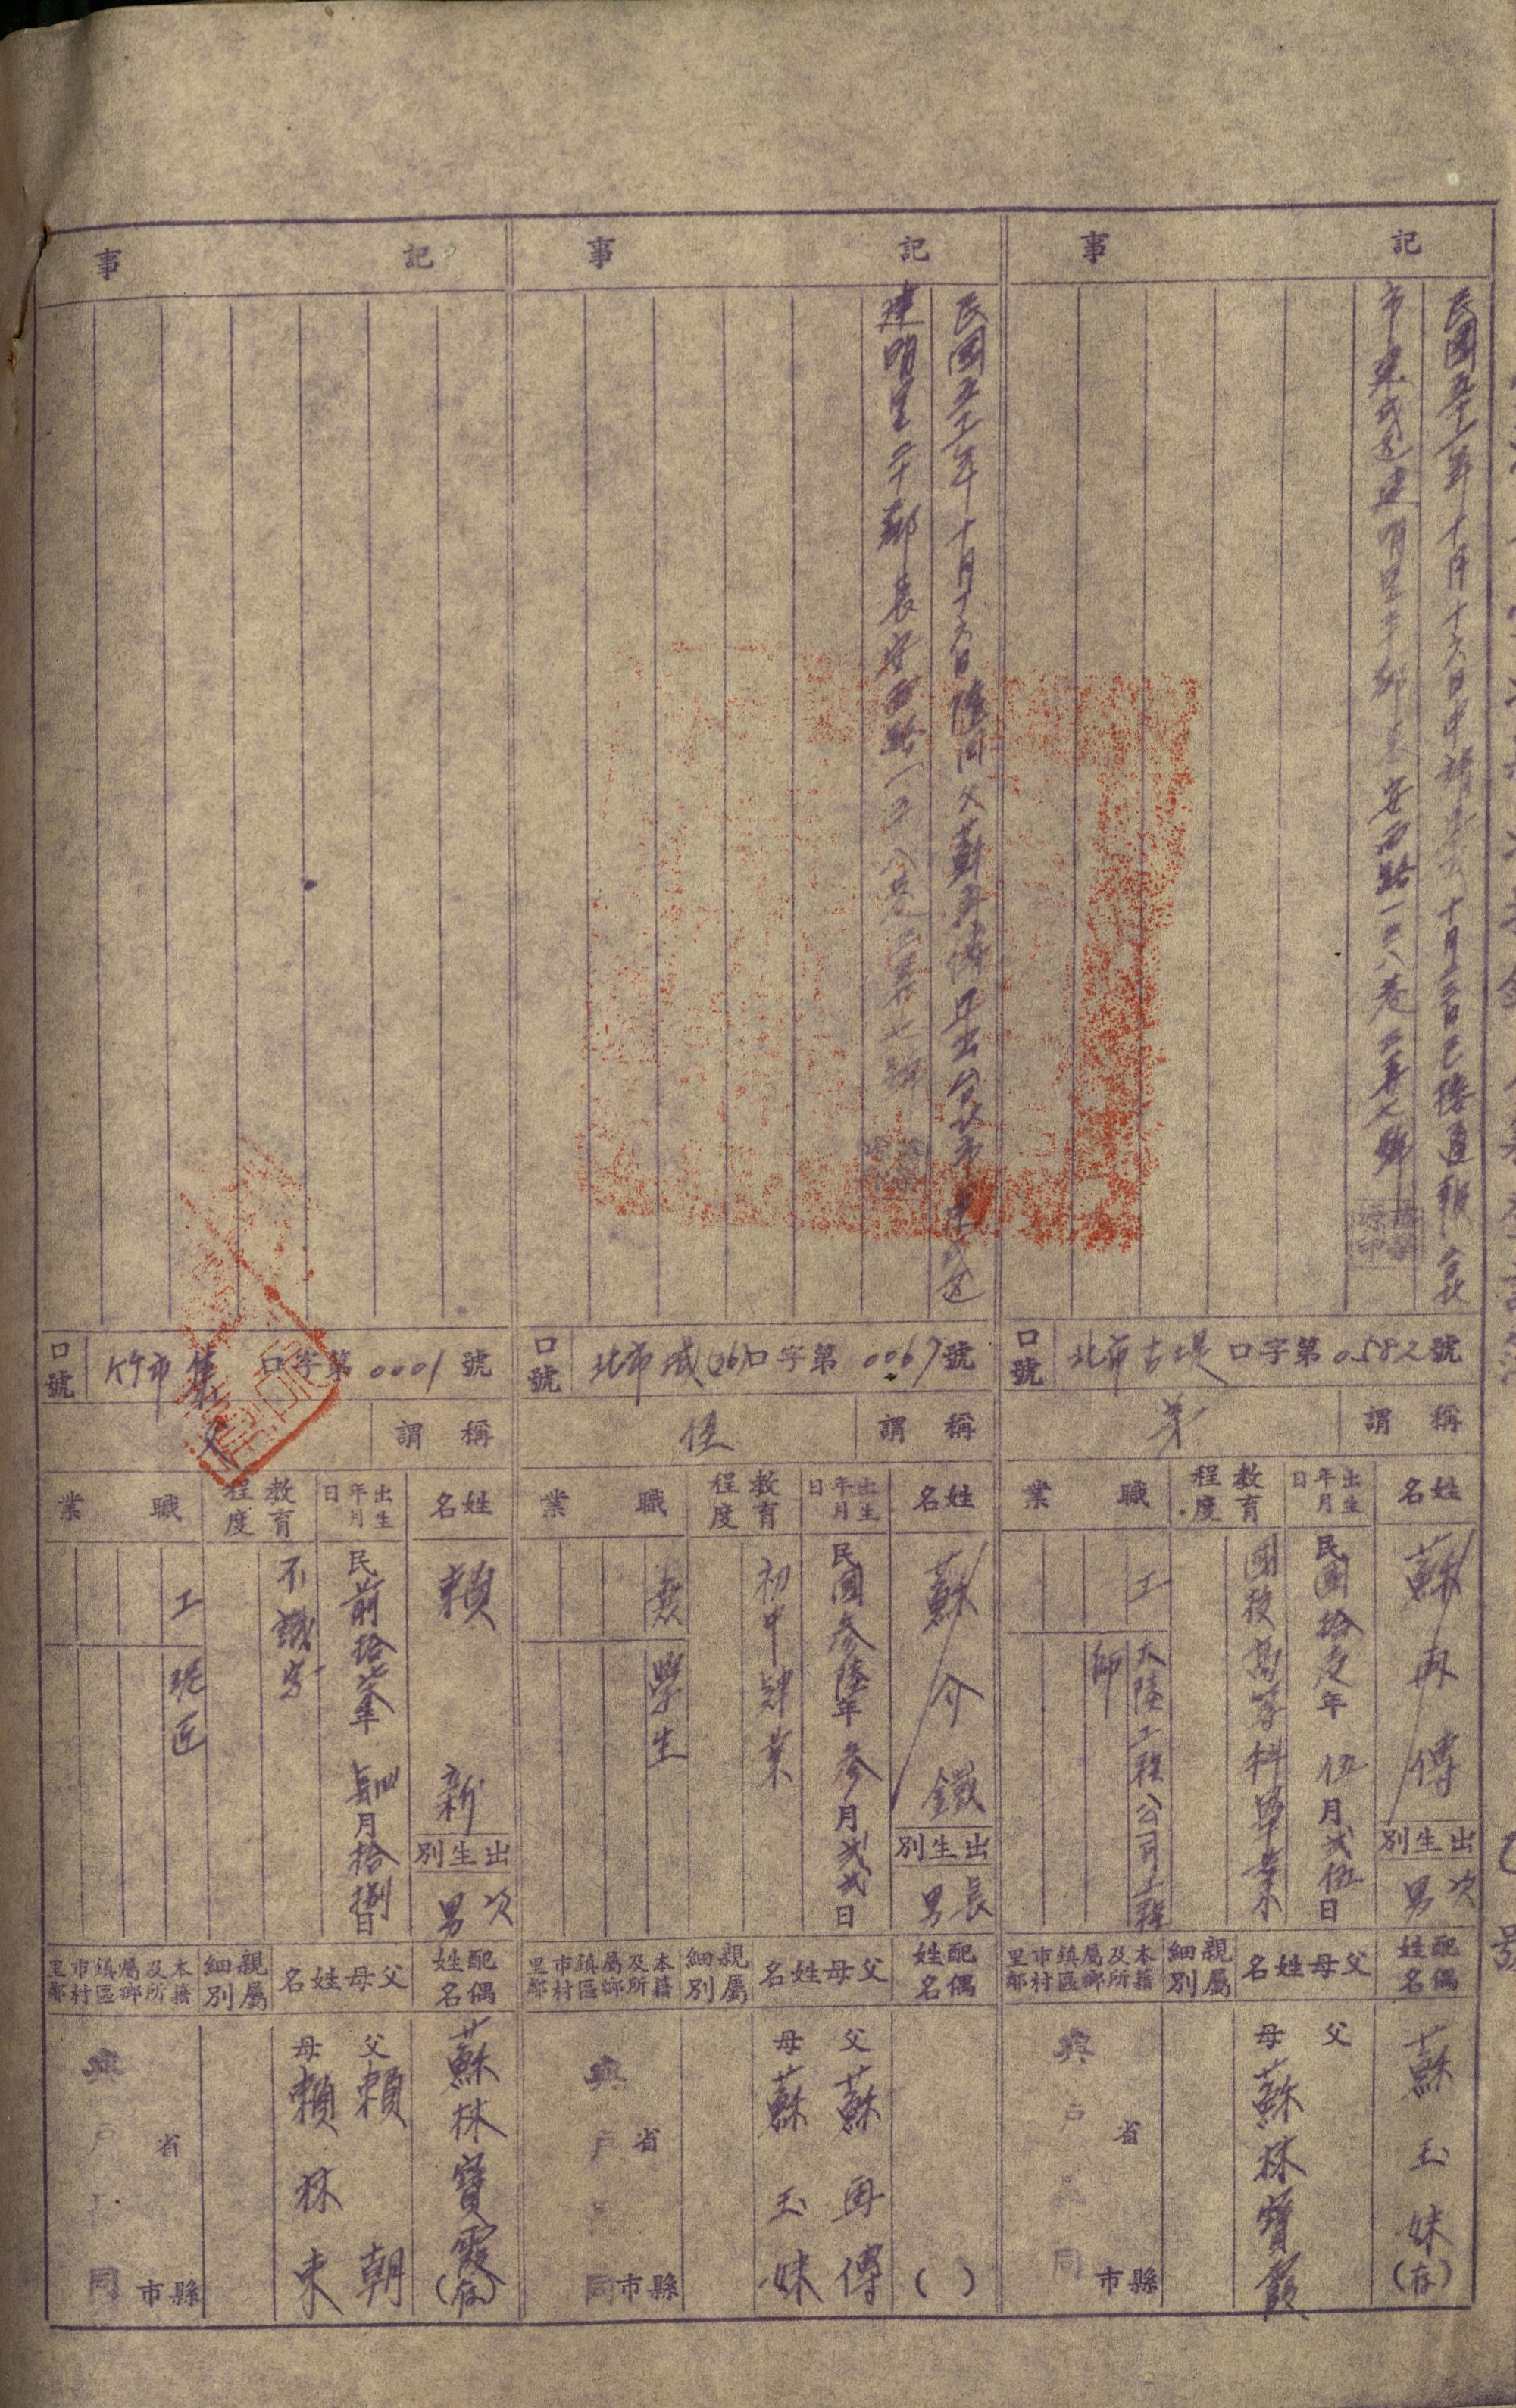 記事
民國五十一年十月十六日申請 十月 日已接通報 台北
市建成區建明里 鄰長安西路一 八巷 弄七號
口號 北市古堤口字第0582號
稱謂 弟
姓名 蘇再傳
出生別 次男
出生年月日 民國拾 年伍月貳伍日
教育程度 國校高等科畢業
職業 工 大陸工程公司工程師
配偶姓名 蘇玉妹(存)
父母姓名 父 母 蘇林寶霞
親屬細別
本籍及所屬鄉鎮區市村里鄰 省 縣市 與戶 同
記事
民國五十一年十月十六日隨同父蘇再傳 出台北市建成區
建明里 鄰長安西路一 八巷 弄七號
口號 北市城(26)口字第0067號
稱謂 侄
姓名 蘇介鐵
出生別 長男
出生年月日 民國參陸年參月貳貳日
教育程度 初中肄業
職業 無 學生
配偶姓名 ( )
父母姓名 父 蘇再傳 母 蘇玉妹
親屬細別
本籍及所屬鄉鎮區市村里鄰 省 縣市 與戶 同
記事
口號 竹市 口字第0001號
稱謂 父
姓名 賴新
出生別 次男
出生年月日 民前拾 年 月拾捌日
教育程度 不識字
職業 工 泥匠
配偶姓名 蘇林寶霞(存)
父母姓名 父 賴朝 母 賴林束
親屬細別
本籍及所屬鄉鎮區市村里鄰 省 縣市 與戶 同